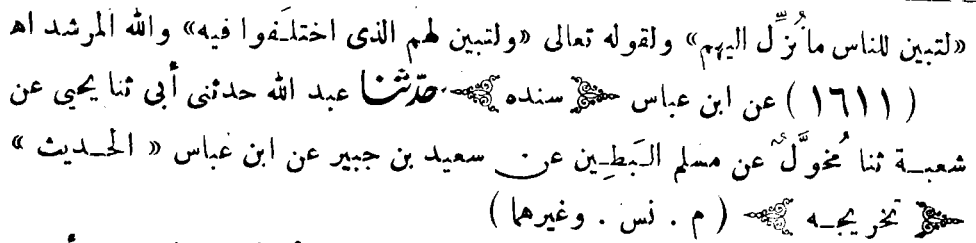 «لتبين للناس ما نُزِّل اليهم» ولقوله تعالى «ولتبين لهم الذى اختلفوا فيه» والله المرشد اه
( ١٦١١ ) عن ابن عباس سنده حدّثنا عبد الله حدثنى أبى ثنا يحيى عن
شعبة ثنا مُخوَّل عن مسلم البَطِين عن سعيد بن جبير عن ابن عباس « الحديث »
تخريجه ( م . نس . وغيرهما )